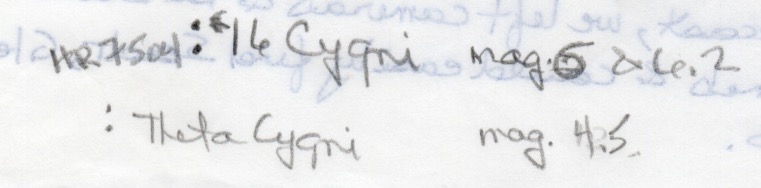 HR7504: *16 Cygni mag. 6 & 6.2
: Theta Cygni mag. 4.5